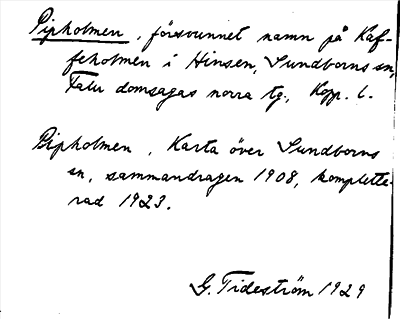 Pipholmen, försvunnet namn på Kaf-
feholmen i Hinsen, Sundborns sn,
Falu domsagas norra tg., Kopp. l.
Pipholmen, Karta över Sundborns
sn, sammandragen 1908, komplette-
rad 1923.
G. Tideström 1929